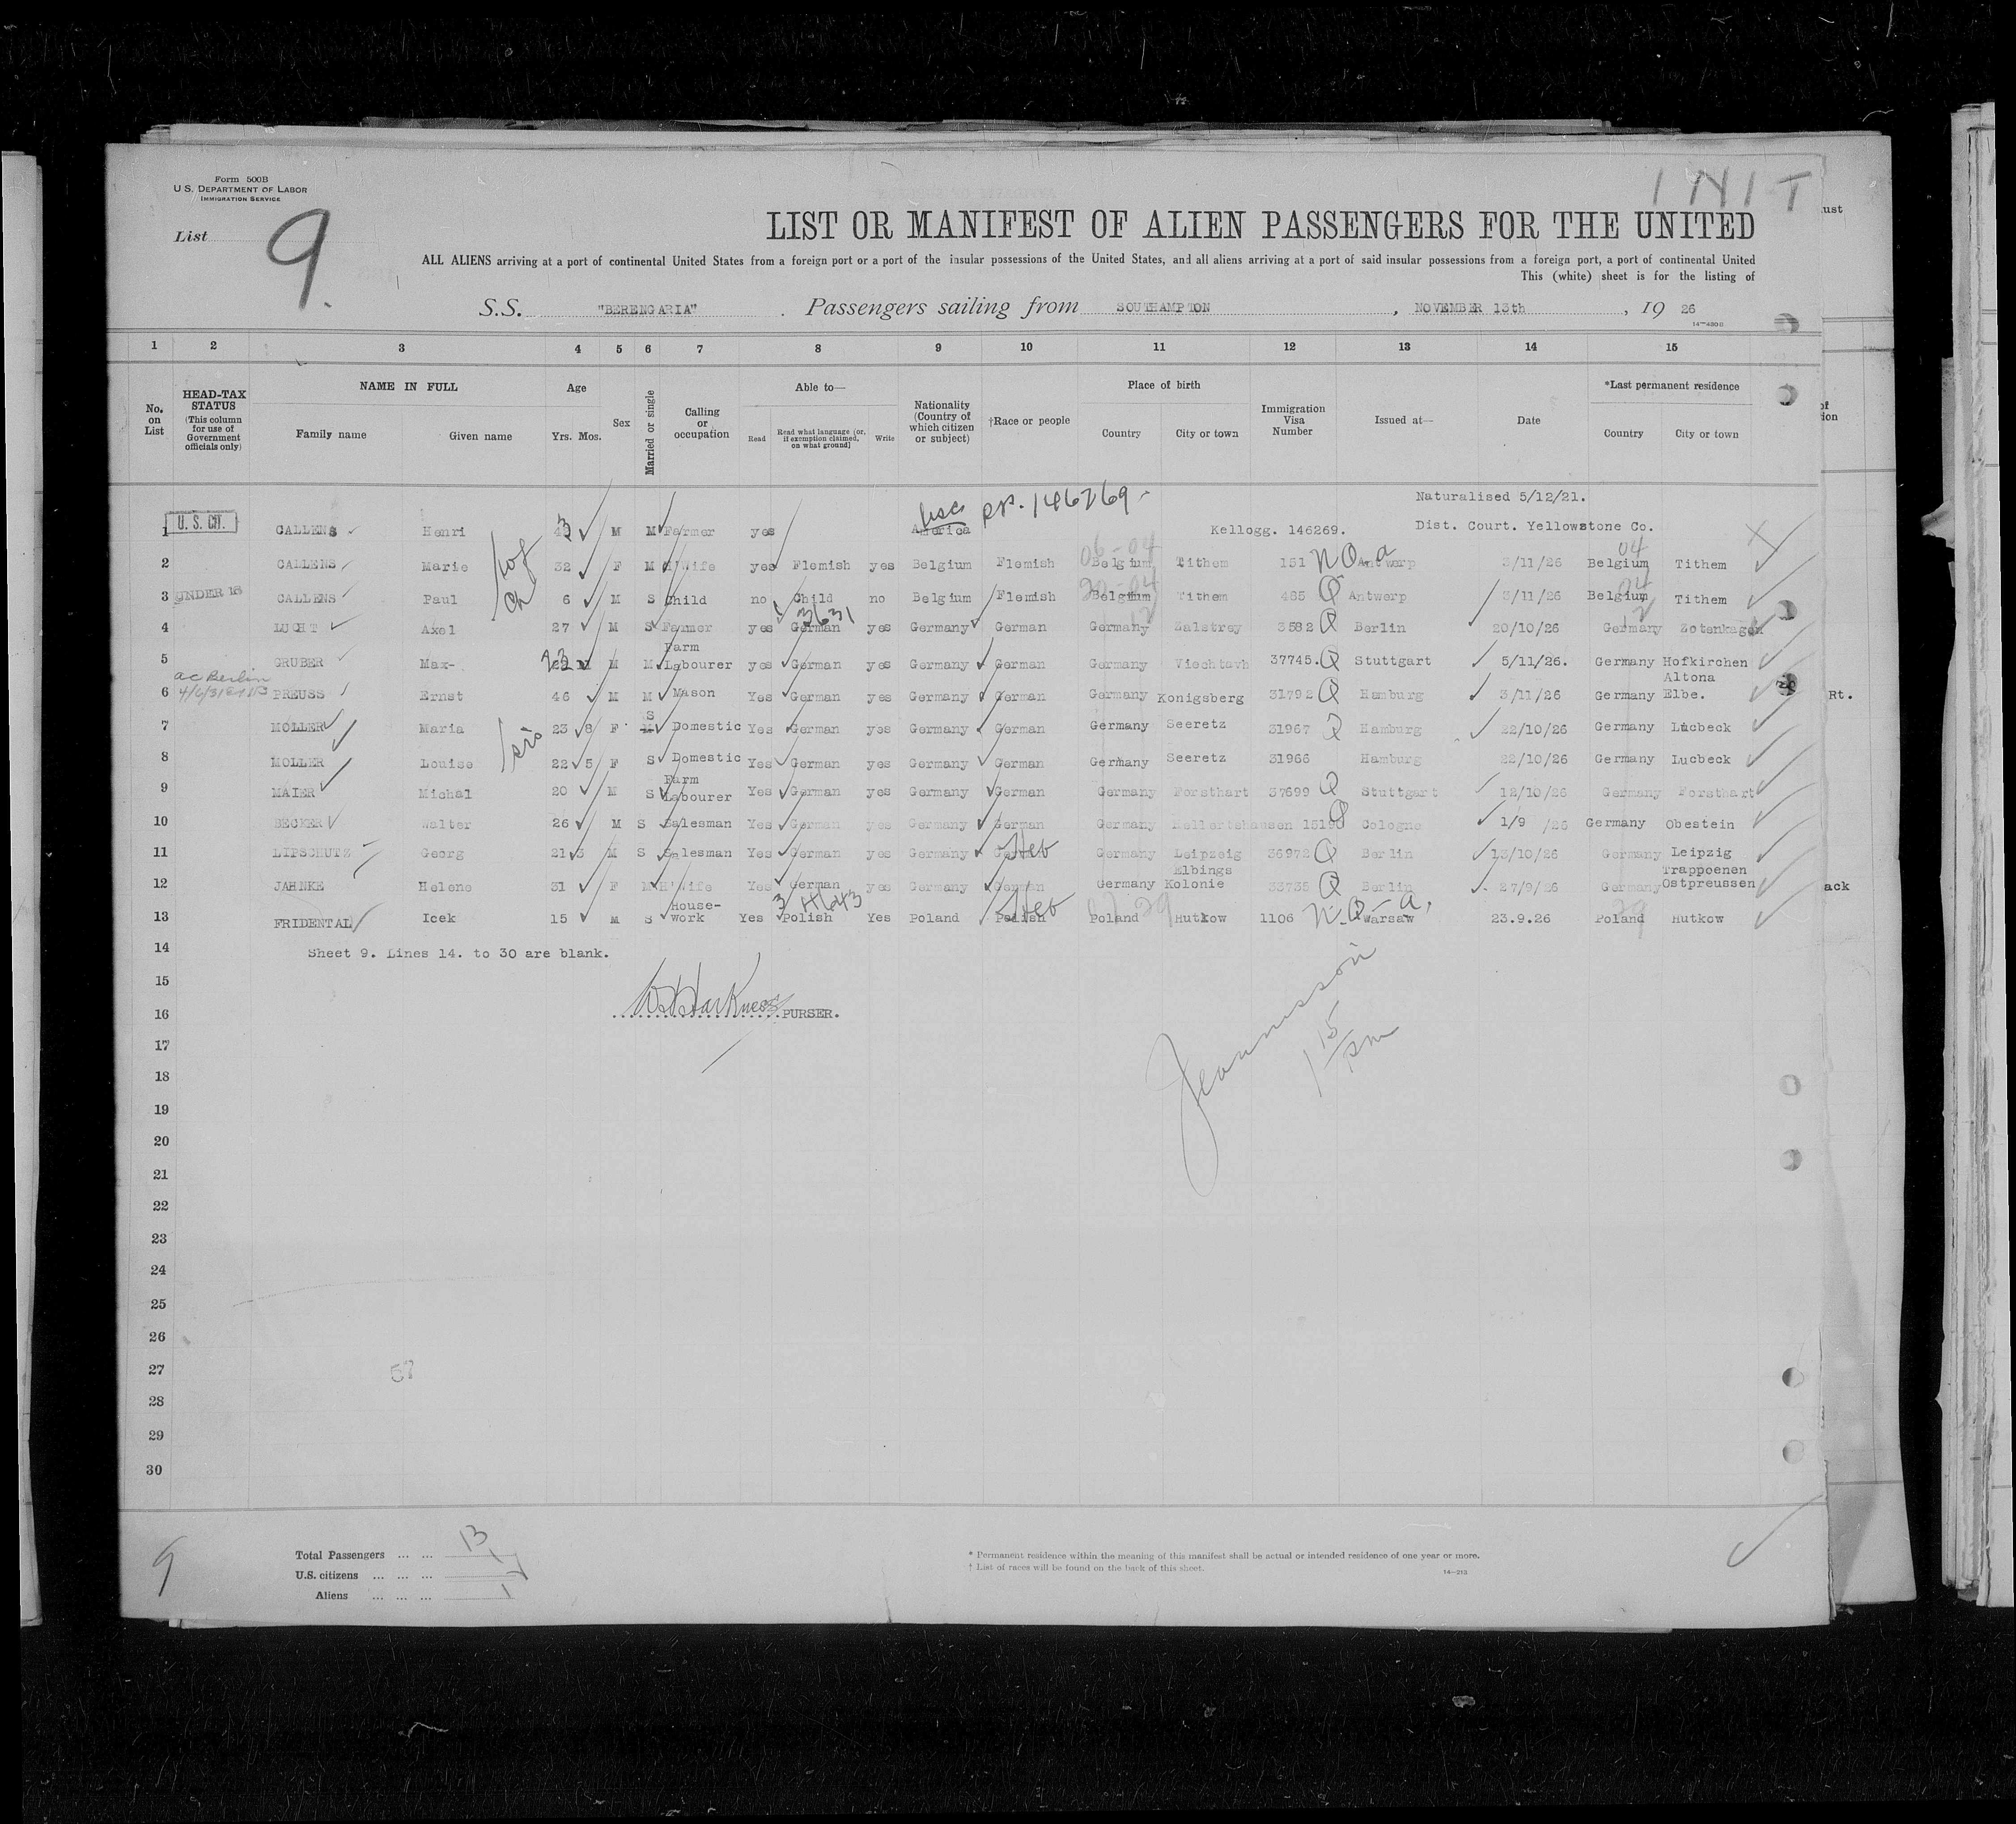 Form 500B
U. S. DEPARTMENT OF LABOR
IMMIGRATION SERVICE
1 N 1 T
ust
List 9.
LIST OR MANIFEST OF ALIEN PASSENGERS FOR THE UNITED
ALL ALIENS arriving at a port of continental United States from a foreign port or a port of the insular possessions of the United States, and all aliens arriving at a port of said insular possessions from a foreign port, a port of continental United
This (white) sheet is for the listing of
S.S. "BERENGARIA" . Passengers sailing from SOUTHAMPTON , NOVEMBER 13th , 19 26
1 2 3 4 5 6 7 8 9 10 11 12 13 14 15
No. on List
HEAD-TAX STATUS (This column for use of Government officials only)
NAME IN FULL Family name Given name
Age Yrs. Mos.
Sex
Married or single
Calling or occupation
Able to— Read Read what language [or, if exemption claimed, on what ground] Write
Nationality (Country of which citizen or subject)
†Race or people
Place of birth Country City or town
Immigration Visa Number
Issued at—
Date
*Last permanent residence Country City or town
usc pp. 146269 Naturalised 5/12/21.
1 U. S. CIT. CALLENS Henri M M Farmer yes America Kellogg. 146269. Dist. Court. Yellowstone Co.
2 CALLENS Marie 32 F M H'Wife yes Flemish yes Belgium Flemish 06-04 Belgium Tithem 151 NQa Antwerp 3/11/26 04 Belgium Tithem
3 UNDER 18 CALLENS Paul 6 M S Child no Child no Belgium Flemish Belgium Tithem 465 Q Antwerp 3/11/26 Belgium Tithem
4 LUCHT Axel 27 M S Farmer yes 3631 German yes Germany German Germany Zalstrey 3582 Q Berlin 20/10/26 Germany Zotenkagen
5 GRUBER Max- M M Farm Labourer yes German yes Germany German Germany Viechtavh 37745. Q Stuttgart 5/11/26. Germany Hofkirchen
ac Berlin
6 PREUSS Ernst 46 M M Mason Yes German yes Germany German Germany Konigsberg 31792 Q Hamburg 3/11/26 Germany Altona Elbe. Rt.
7 MOLLER Maria sis 23 8 F S M Domestic Yes German yes Germany German Germany Seeretz 31967 Q Hamburg 22/10/26 Germany Lubeck
8 MOLLER Louise 22 5 F S Domestic Yes German yes Germany German Germany Seeretz 31966 Hamburg 22/10/26 Germany Lucbeck
9 MAIER Michal 20 M S Farm Labourer Yes German yes Germany German Germany Forsthart 37699 Q Stuttgart 12/10/26 Germany Forsthart
10 BECKER Walter 26 M S Salesman Yes German yes Germany German Germany Hellertshausen 15190 Q Cologne 1/9 /26 Germany Obestein
11 LIPSCHUTZ Georg 21 3 M S Salesman Yes German yes Germany Heb Germany Leipzeig 36972 Q Berlin 13/10/26 Germany Leipzig
12 JAHNKE Helene 31 F M H'Wife Yes German yes Germany German Germany Elbings Kolonie 33735 Q Berlin 27/9/26 Germany Trappoenen Ostpreussen ack
13 FRIDENTAL Icek 15 M S House-work Yes Polish Yes Poland Polish Heb Poland Hutkow 1106 N.Q-a. Warsaw 23.9.26 Poland Hutkow
14 Sheet 9. Lines 14. to 30 are blank.
15
16 W Harkness PURSER.
Jeannisson
1 15/pm
17
18
19
20
21
22
23
24
25
26
27
28
29
30
9
Total Passengers ... ... 13
U.S. citizens ... ... ...
Aliens ... ... ...
* Permanent residence within the meaning of this manifest shall be actual or intended residence of one year or more.
† List of races will be found on the back of this sheet.
14—213